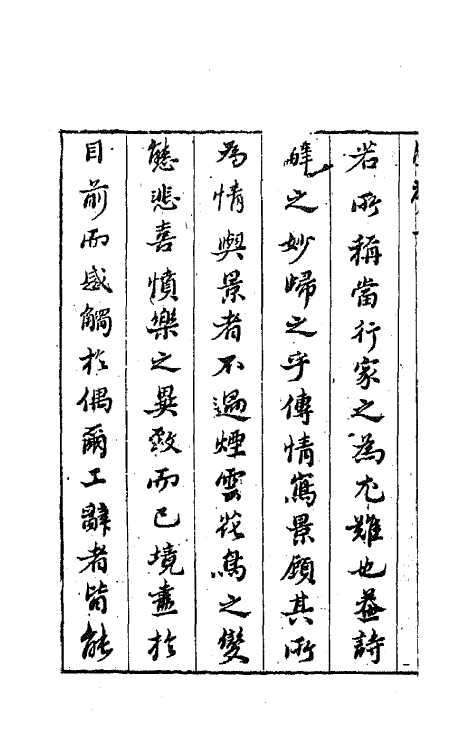 若所稱當行家之為尤難也蓋詩
辭之妙歸之乎傳情寫景顧其所
為情與景者不過煙雲花鳥之變
態悲喜憤樂之異致而已境盡於
目前而感觸於偶爾工辭者皆能